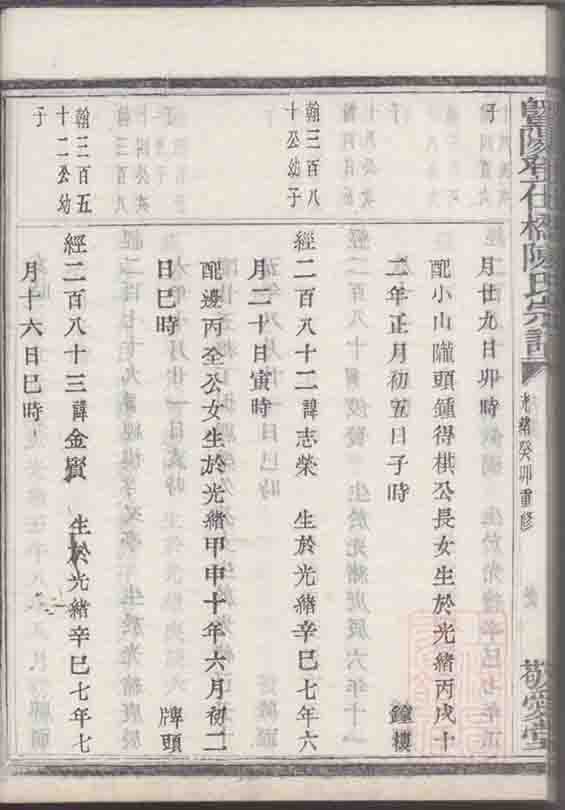 暨陽開化石橋陳氏宗譜
光緒癸卯重修
敬愛堂
子
月廿九日卯時
配小山隴頭鍾得棋公長女生於光緒丙戌十
二年正月初五日子時 鐘樓
翰三百八
十公幼子
經二百八十二諱志榮 生於光緒辛巳七年六
月二十日寅時
配邊丙全公女生於光緒甲申十年六月初二
日巳時 牌頭
翰三百五
十二公幼
子
經二百八十三諱金寳 生於光緒辛巳七年七
月十六日巳時